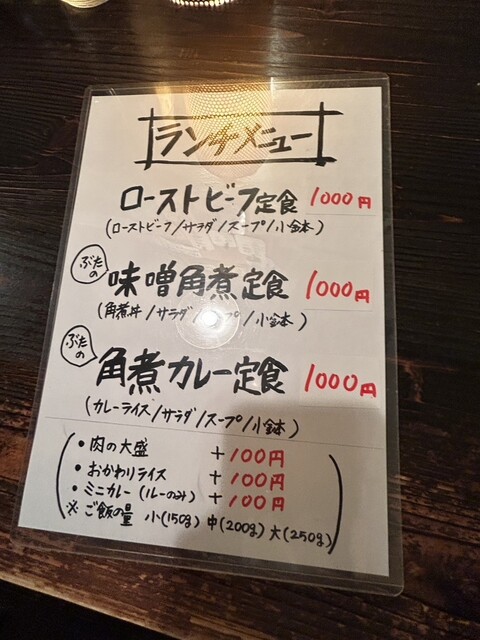 ランチメニュー
ローストビーフ定食 1000円
(ローストビーフ/サラダ/スープ/小鉢)
ぶたの
味噌角煮定食 1000円
(角煮丼/サラダ/プ/小鉢)
ぶたの
角煮カレー定食 1000円
(カレーライス/サラダ/スープ/小鉢)
・肉の大盛 +100円
・おかわりライス +100円
・ミニカレー(ルーのみ) +100円
※ご飯の量 小(150g) 中(200g) 大(250g)